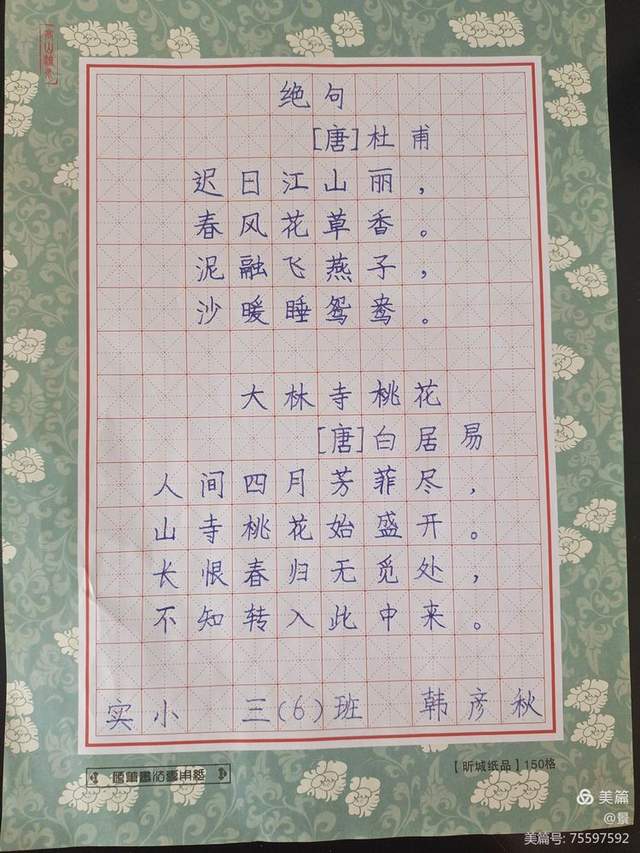 绝句
[唐]杜甫
迟日江山丽，
春风花草香。
泥融飞燕子，
沙暖睡鸳鸯。
大林寺桃花
[唐]白居易
人间四月芳菲尽，
山寺桃花始盛开。
长恨春归无觅处，
不知转入此中来。
实小 三(6)班 韩彦秋
【昕城纸品】150格
美篇
@景
美篇号: 75597592